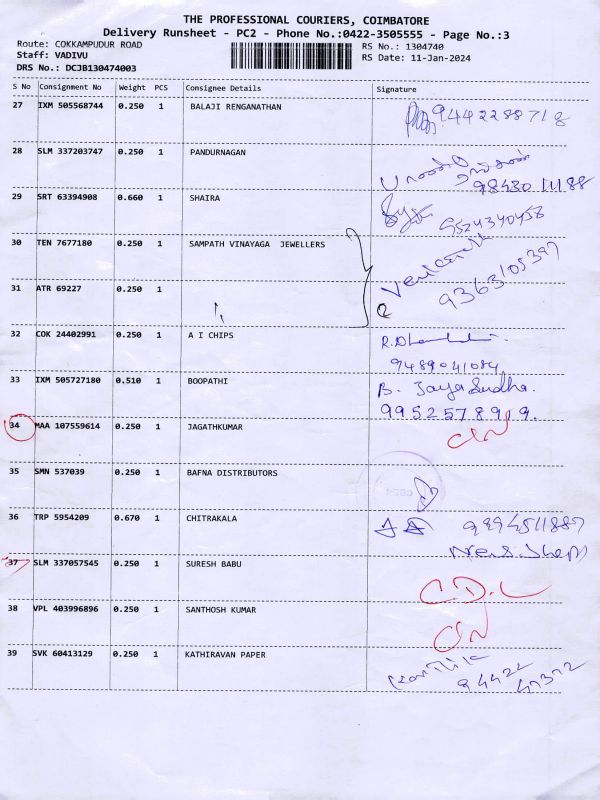 THE PROFESSIONAL COURIERS, COIMBATORE
Delivery Runsheet - PC2 - Phone No.:0422-3505555 - Page No.:3
Route: COKKAMPUDUR ROAD RS No.: 1304740
Staff: VADIVU RS Date: 11-Jan-2024
DRS No.: DCJB130474003
S No Consignment No Weight PCS Consignee Details Signature
27 IXM 505568744 0.250 1 BALAJI RENGANATHAN 9442288718
28 SLM 337203747 0.250 1 PANDURNAGAN
9843011188
29 SRT 63394908 0.660 1 SHAIRA
9524340458
30 TEN 7677180 0.250 1 SAMPATH VINAYAGA JEWELLERS
31 ATR 69227 0.250 1 9363105397
32 COK 24402991 0.250 1 A I CHIPS
9489041084
33 IXM 505727180 0.510 1 BOOPATHI B. Jaya Sudha.
9952578919.
34 MAA 107559614 0.250 1 JAGATHKUMAR
35 SMN 537039 0.250 1 BAFNA DISTRIBUTORS
36 TRP 5954209 0.670 1 CHITRAKALA 9994511887
37 SLM 337057545 0.250 1 SURESH BABU C.D.L
38 VPL 403996896 0.250 1 SANTHOSH KUMAR
39 SVK 60413129 0.250 1 KATHIRAVAN PAPER
94422
47372